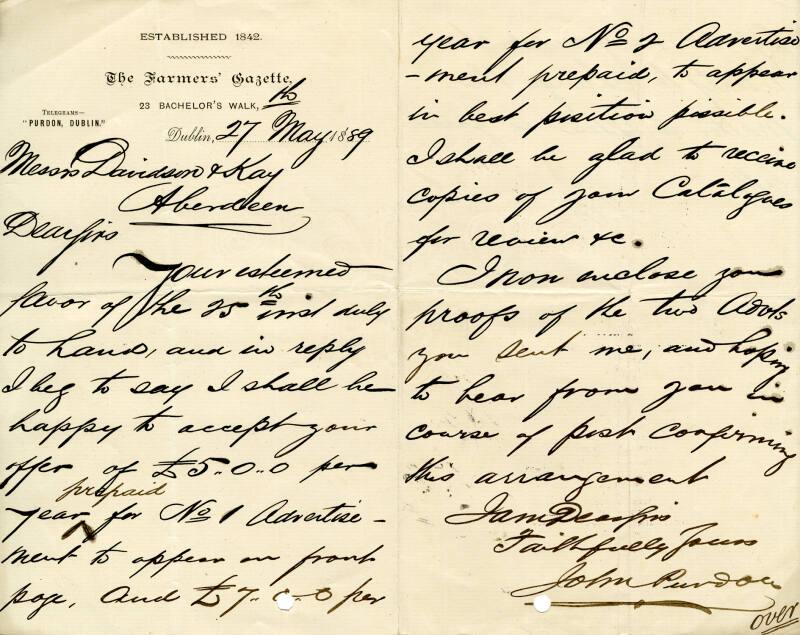 ESTABLISHED 1842.
The Farmers' Gazette,
23 BACHELOR'S WALK,
TELEGRAMS—
"PURDON, DUBLIN."
Dublin, 27th May 1889
Messrs Davidson & Kay
Aberdeen
Dear Sirs
Your esteemed
favor of the 25th inst duly
to hand, and in reply
I beg to say I shall be
happy to accept your
offer of £5..0..0 per
prepaid
year for No 1 Advertise-
ment to appear on front
page, and £7..0..0 per
year for No 2 Advertise
-ment prepaid, to appear
in best position possible.
I shall be glad to receive
copies of your Catalogues
for review &c.
I now enclose you
proofs of the two Advts
you sent me, and hoping
to hear from you in
course of post confirming
this arrangement
I am Dear Sirs
Faithfully Yours
John Purdon
over